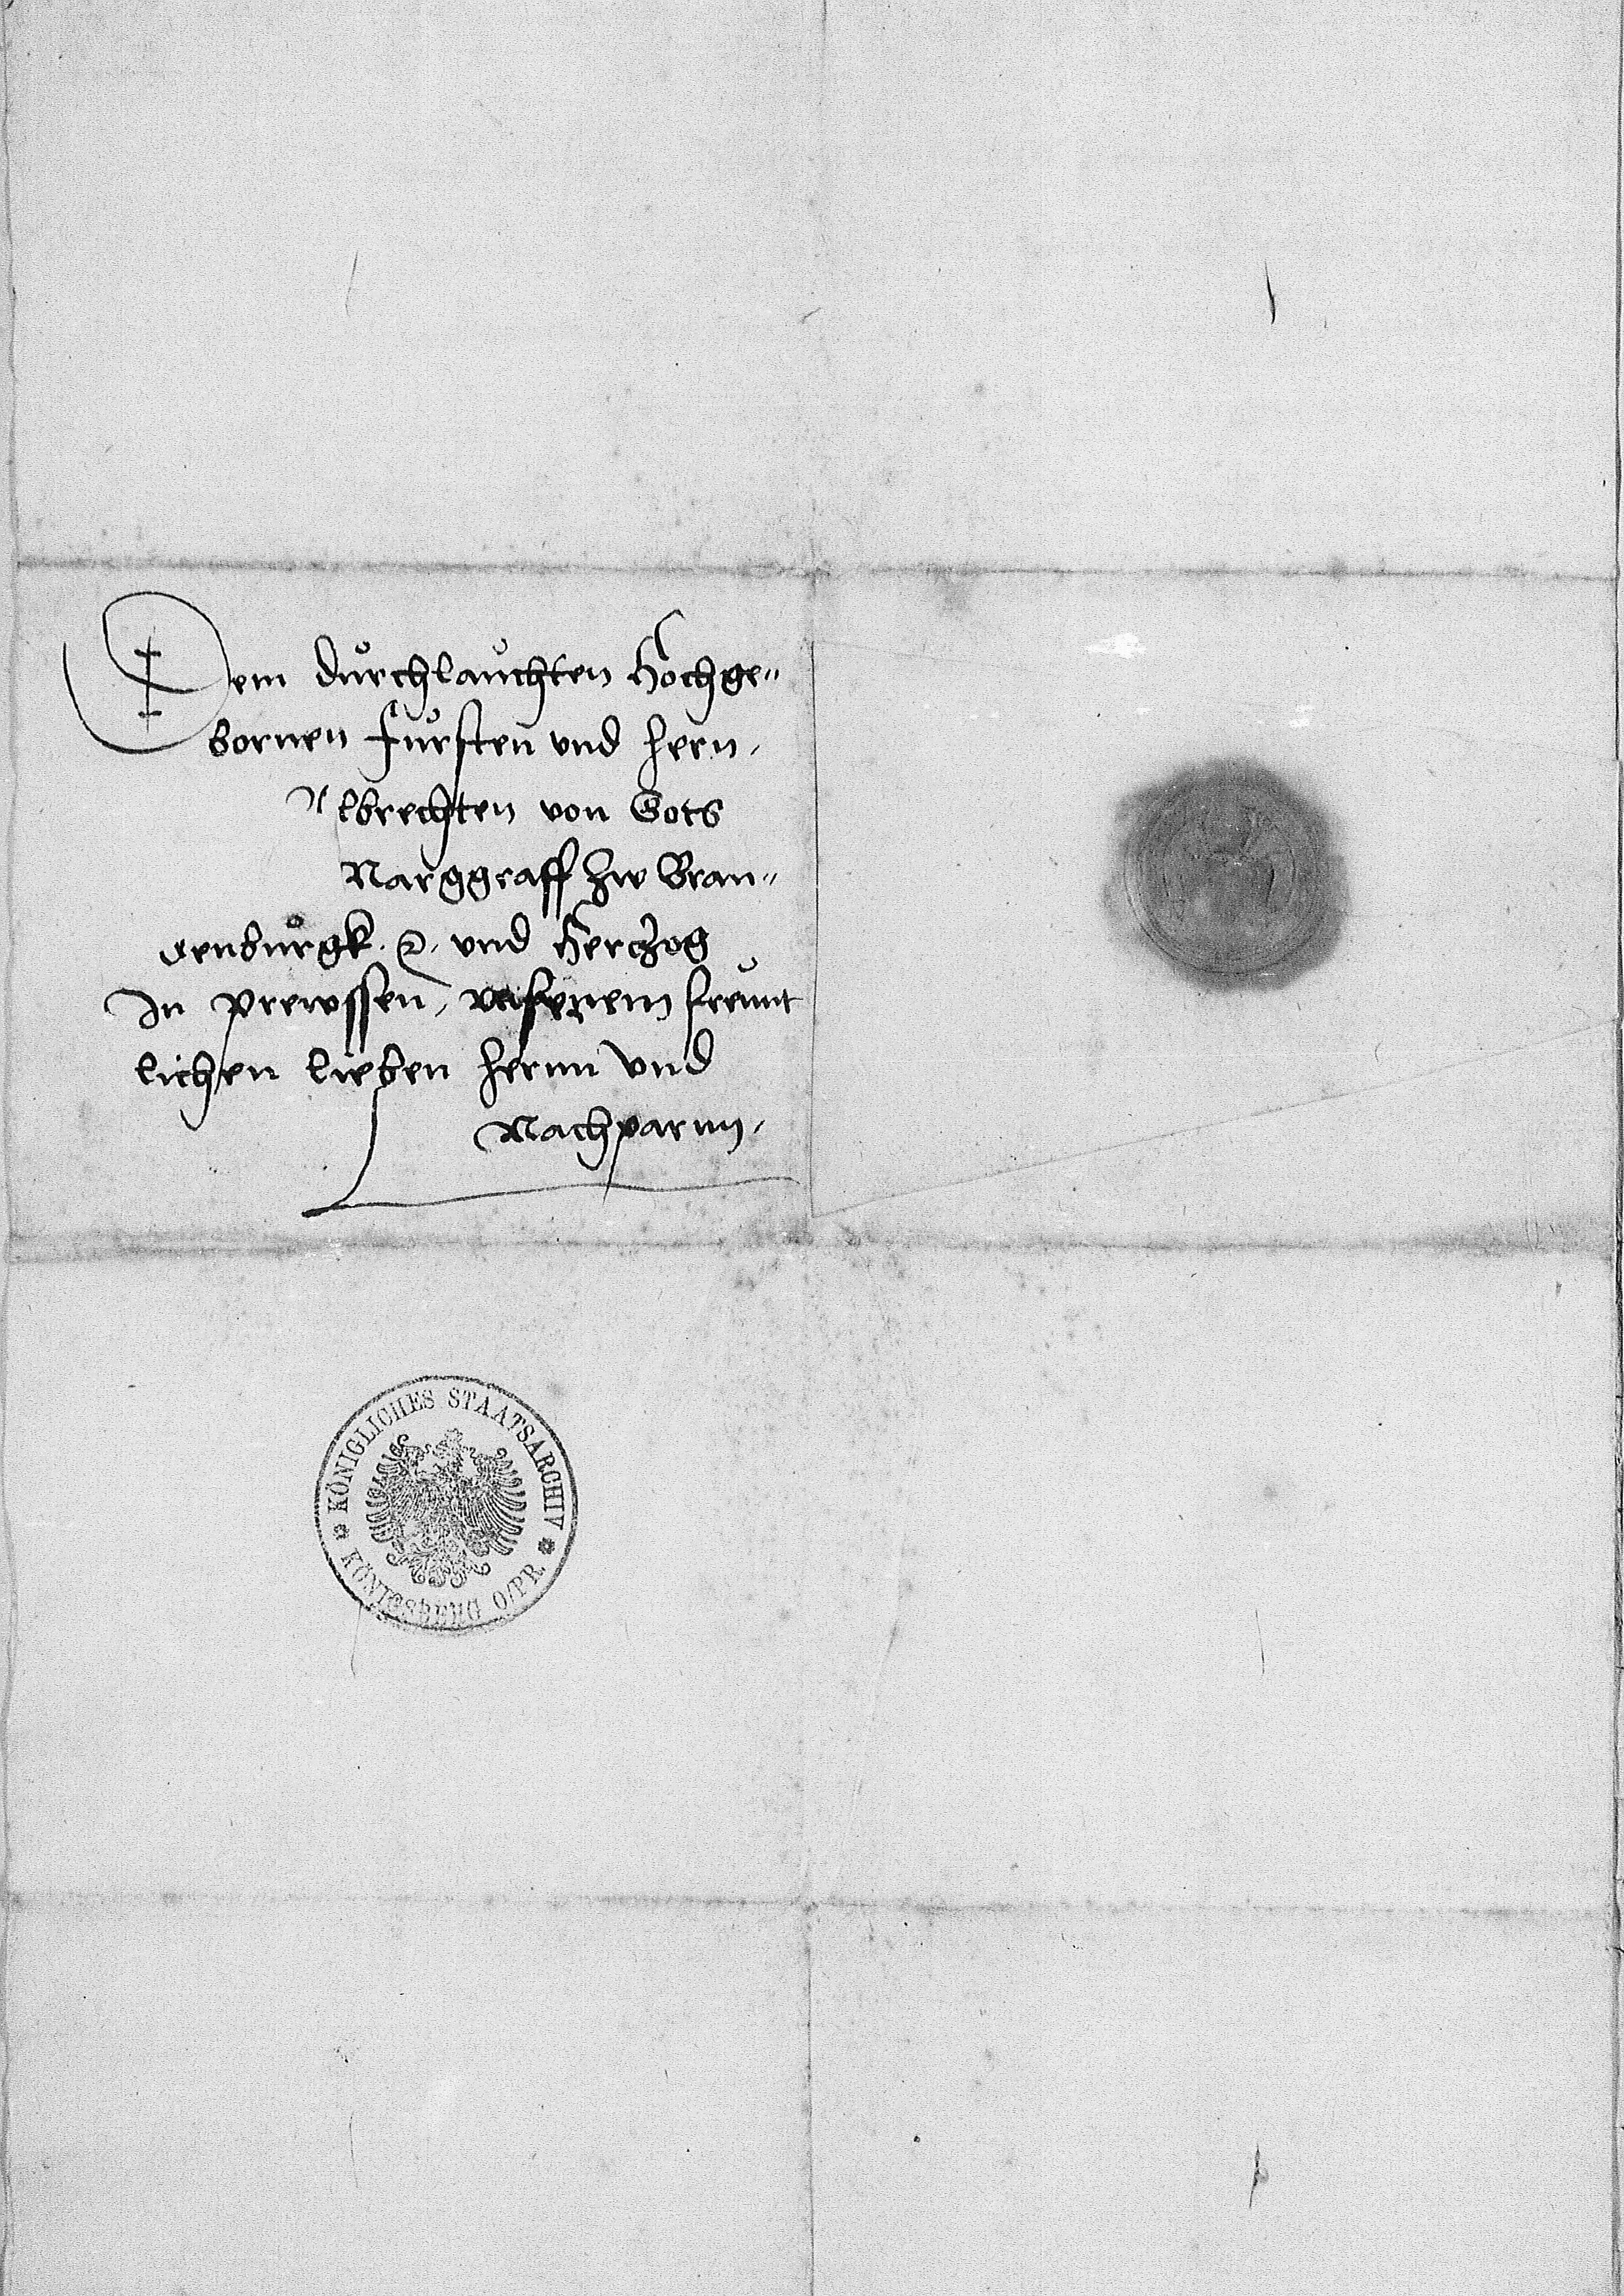 Dem durchlauchten Hochge„
bornen fursten vnd hern,
Albrechten von Gots
Marggraff Zw Bran„
denburgk. ꝛc. vnd Herczog
In prewssen, vnserem freunt
lichen lieben hernn vnd
Nachparnn,
KÖNIGLICHES STAATSARCHIV
KÖNIGSBERG O/PR.